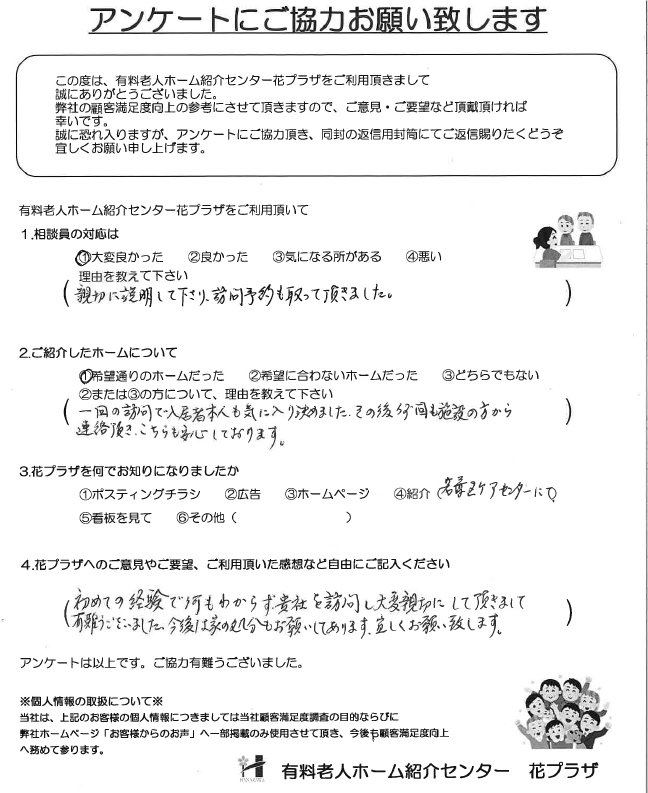 アンケートにご協力お願い致します
この度は、有料老人ホーム紹介センター花プラザをご利用頂きまして
誠にありがとうございました。
弊社の顧客満足度向上の参考にさせて頂きますので、ご意見・ご要望など頂戴頂ければ
幸いです。
誠に恐れ入りますが、アンケートにご協力頂き、同封の返信用封筒にてご返信賜りたくどうぞ
宜しくお願い申し上げます。
有料老人ホーム紹介センター花プラザをご利用頂いて
1.相談員の対応は
①大変良かった ②良かった ③気になる所がある ④悪い
理由を教えて下さい
(親切に説明して下さり、訪問予約も取って頂きました。)
2.ご紹介したホームについて
①希望通りのホームだった ②希望に合わないホームだった ③どちらでもない
②または③の方について、理由を教えて下さい
(一回の訪問で入居者本人も気に入り決めました。その後何回も施設の方から
連絡頂き、こちらも安心しております。)
3.花プラザを何でお知りになりましたか
①ポスティングチラシ ②広告 ③ホームページ ④紹介(ケアセンターにて)
⑤看板を見て ⑥その他( )
4.花プラザへのご意見やご要望、ご利用頂いた感想など自由にご記入ください
(初めての経験で何もわからず貴社を訪問し大変親切にして頂きまして
有難うございました。今後は家の処分もお願いしてあります。宜しくお願い致します。)
アンケートは以上です。ご協力有難うございました。
※個人情報の取扱について※
当社は、上記のお客様の個人情報につきましては当社顧客満足度調査の目的ならびに
弊社ホームページ「お客様からのお声」へ一部掲載のみ使用させて頂き、今後も顧客満足度向上
へ務めて参ります。
HANAKAWA 有料老人ホーム紹介センター 花プラザ